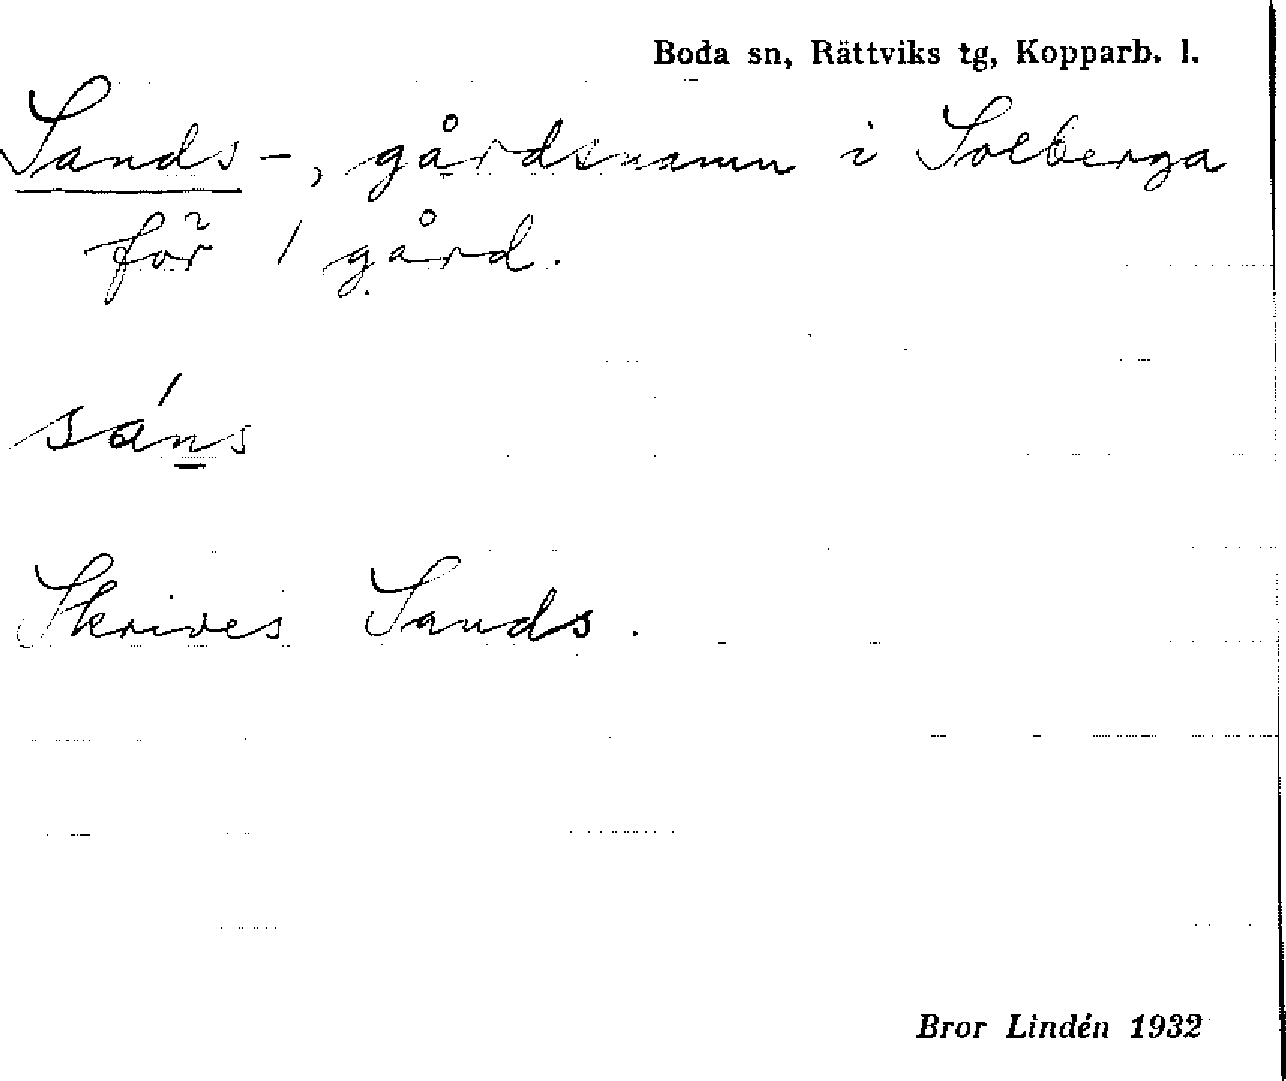 Boda sn, Rättviks tg, Kopparb. l.
Sands-, gårdsnamn i Solberga
för 1 gård.
sáns
Skrives Sands.
Bror Lindén 1932